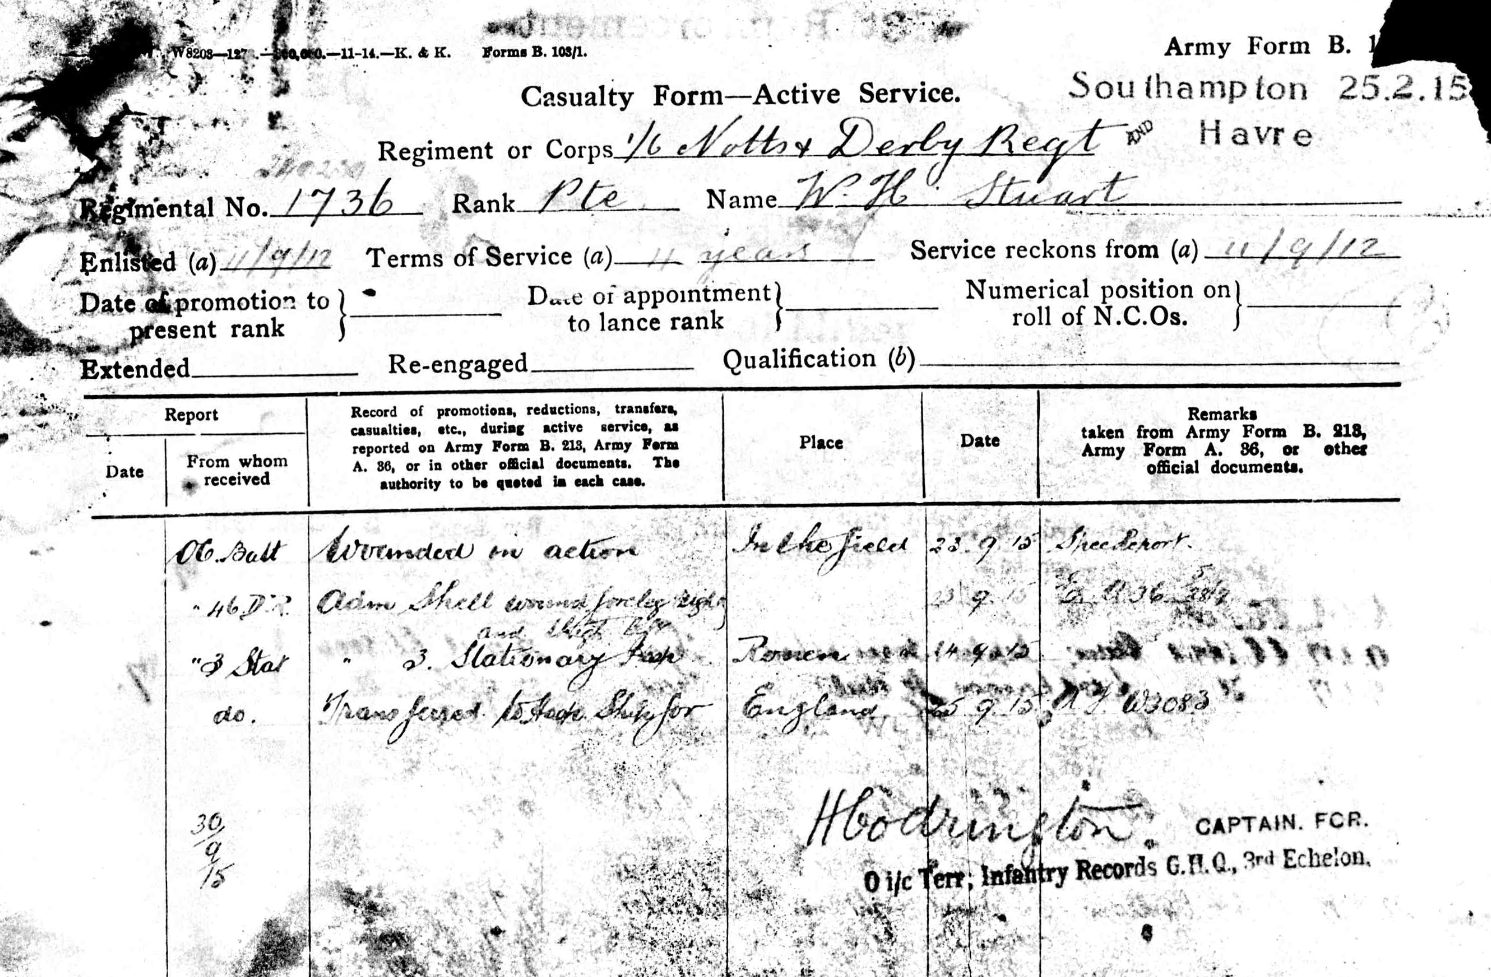 W8203—127 —11-14.—K. & K. Forms B. 103/1.
Army Form B.
Southampton 25.2.15
Casualty Form—Active Service.
AND Havre
Regiment or Corps 1/6 Notts & Derby Regt
Regimental No. 1736 Rank Pte Name W. H. Stuart
Enlisted (a) 11/9/12 Terms of Service (a) 4 years Service reckons from (a) 11/9/12
Date of promotion to present rank } Date of appointment to lance rank } Numerical position on roll of N.C.Os. }
Extended Re-engaged Qualification (b)
Report
Date
From whom received
Record of promotions, reductions, transfers,
casualties, etc., during active service, as
reported on Army Form B. 213, Army Form
A. 36, or in other official documents. The
authority to be quoted in each case.
Place
Date
Remarks
taken from Army Form B. 213,
Army Form A. 36, or other
official documents.
OC. Batt Wounded in action In the field 23.9.15 Spec Report.
" 46 D.R. Adm Shell wound foreleg Right 9 15 A36
and
" 3 Stat " 3. Stationary Hosp Rouen 14.9.15
do. Transferred to Hosp. Ship for England 25 9 15 A.F. W3083
30/9/15
H Codrington. CAPTAIN. FOR.
O i/c Terr; Infantry Records G.H.Q., 3rd Echelon.